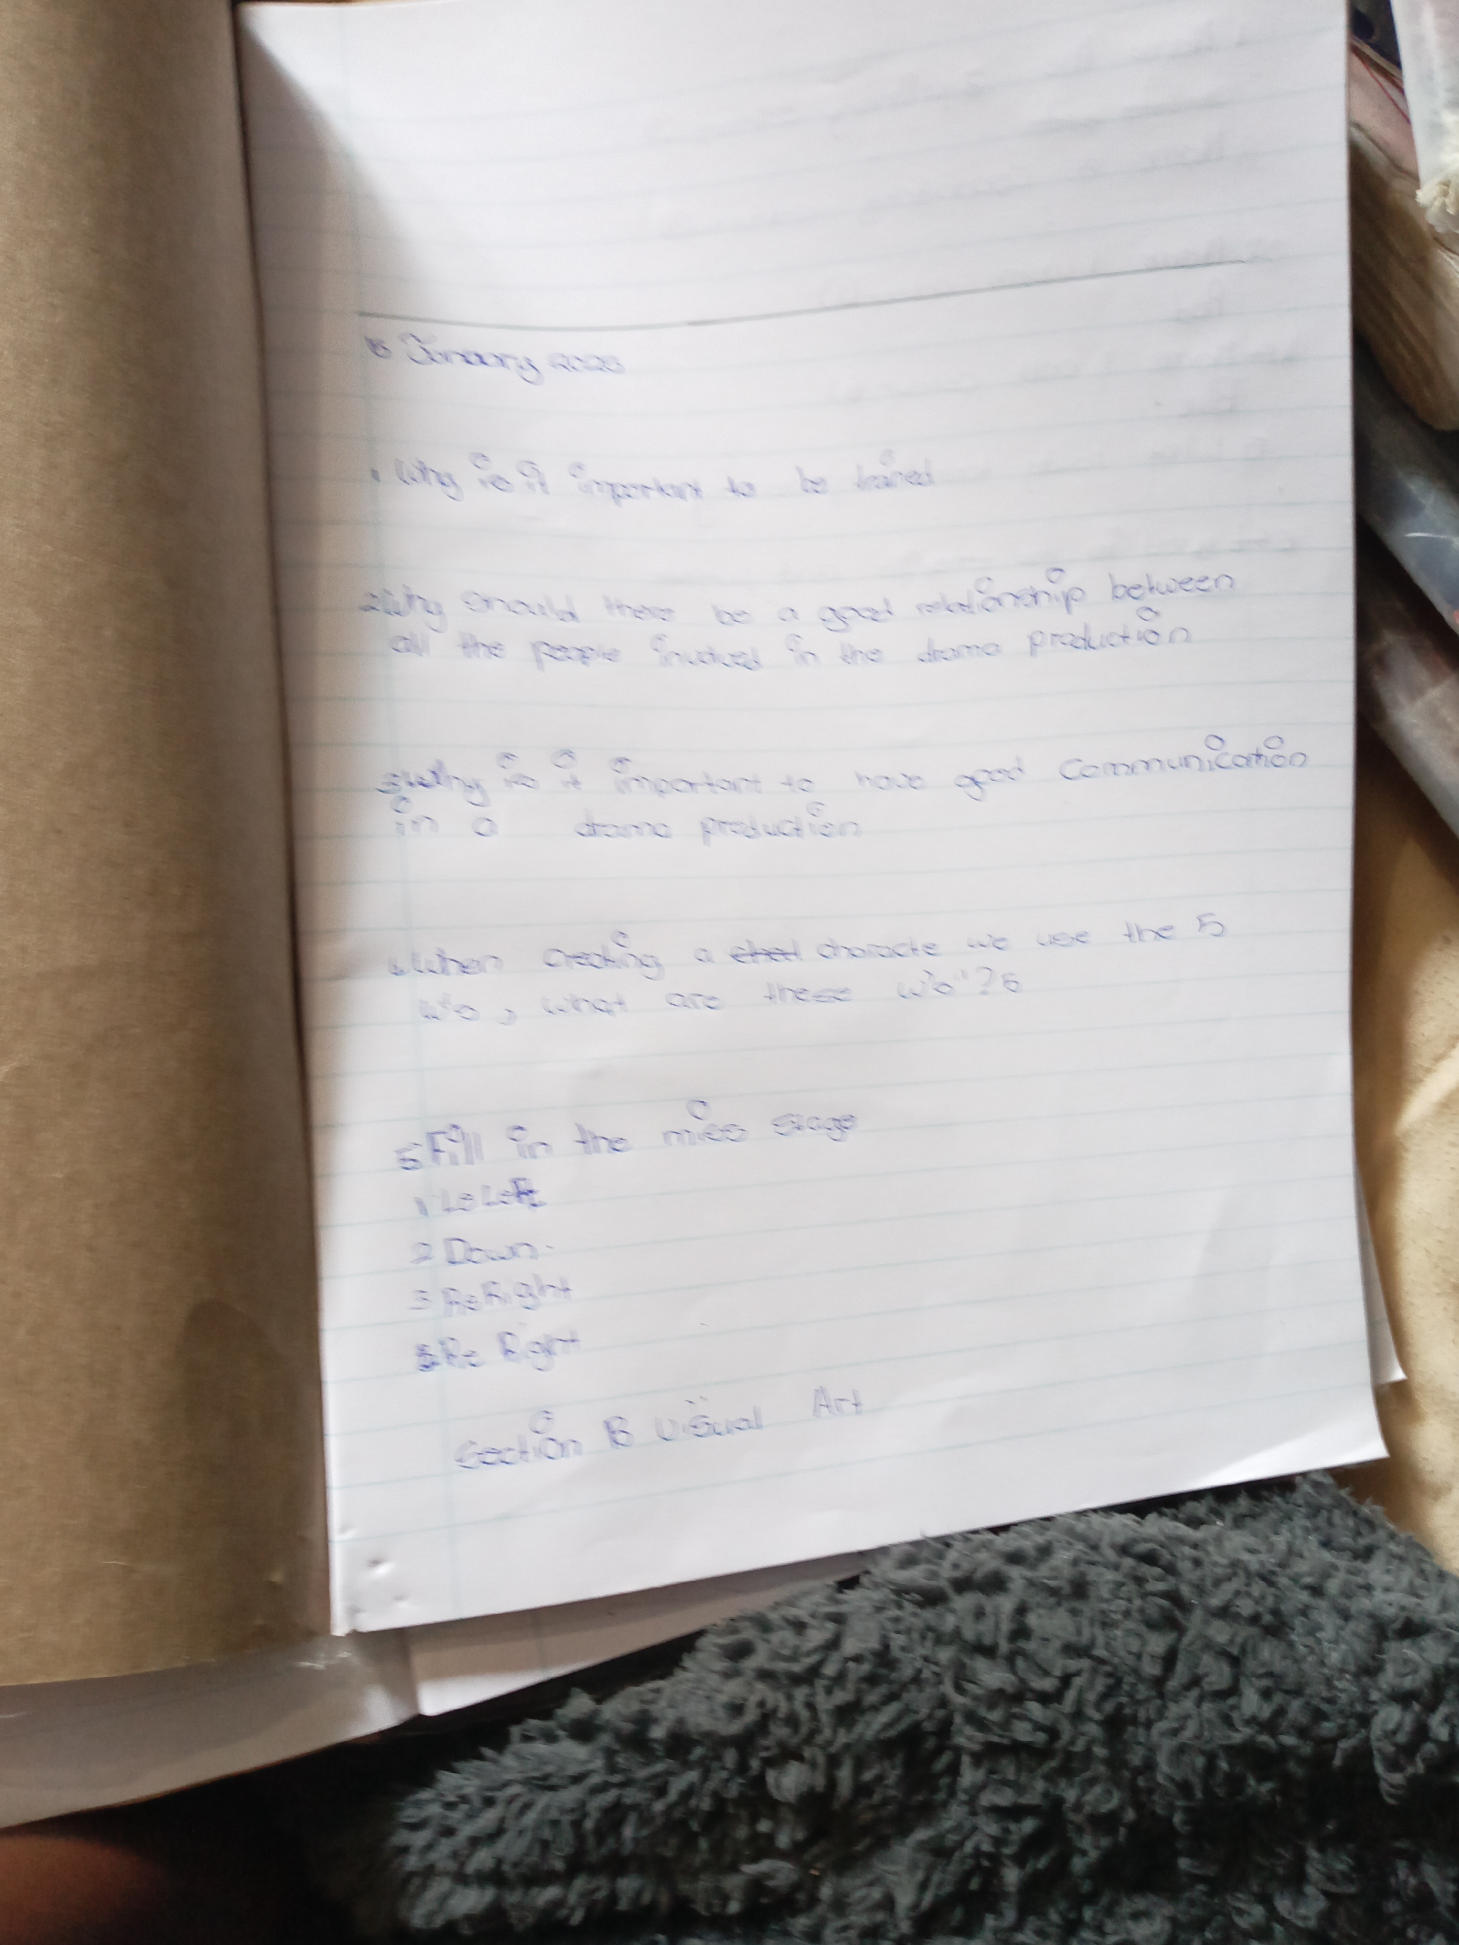 January 202
1 Why is it important to be trained
2 Why should there be a good relationship between
all the people involved in the drama production
3 Why is it important to have good Communication
in a drama production
4 When creating a characte we use the 5
W's, what are these w's"?
5 Fill in the miss stage
1 Le Left
2 Down.
3 Re Right
Re Right
Section B Visual Art